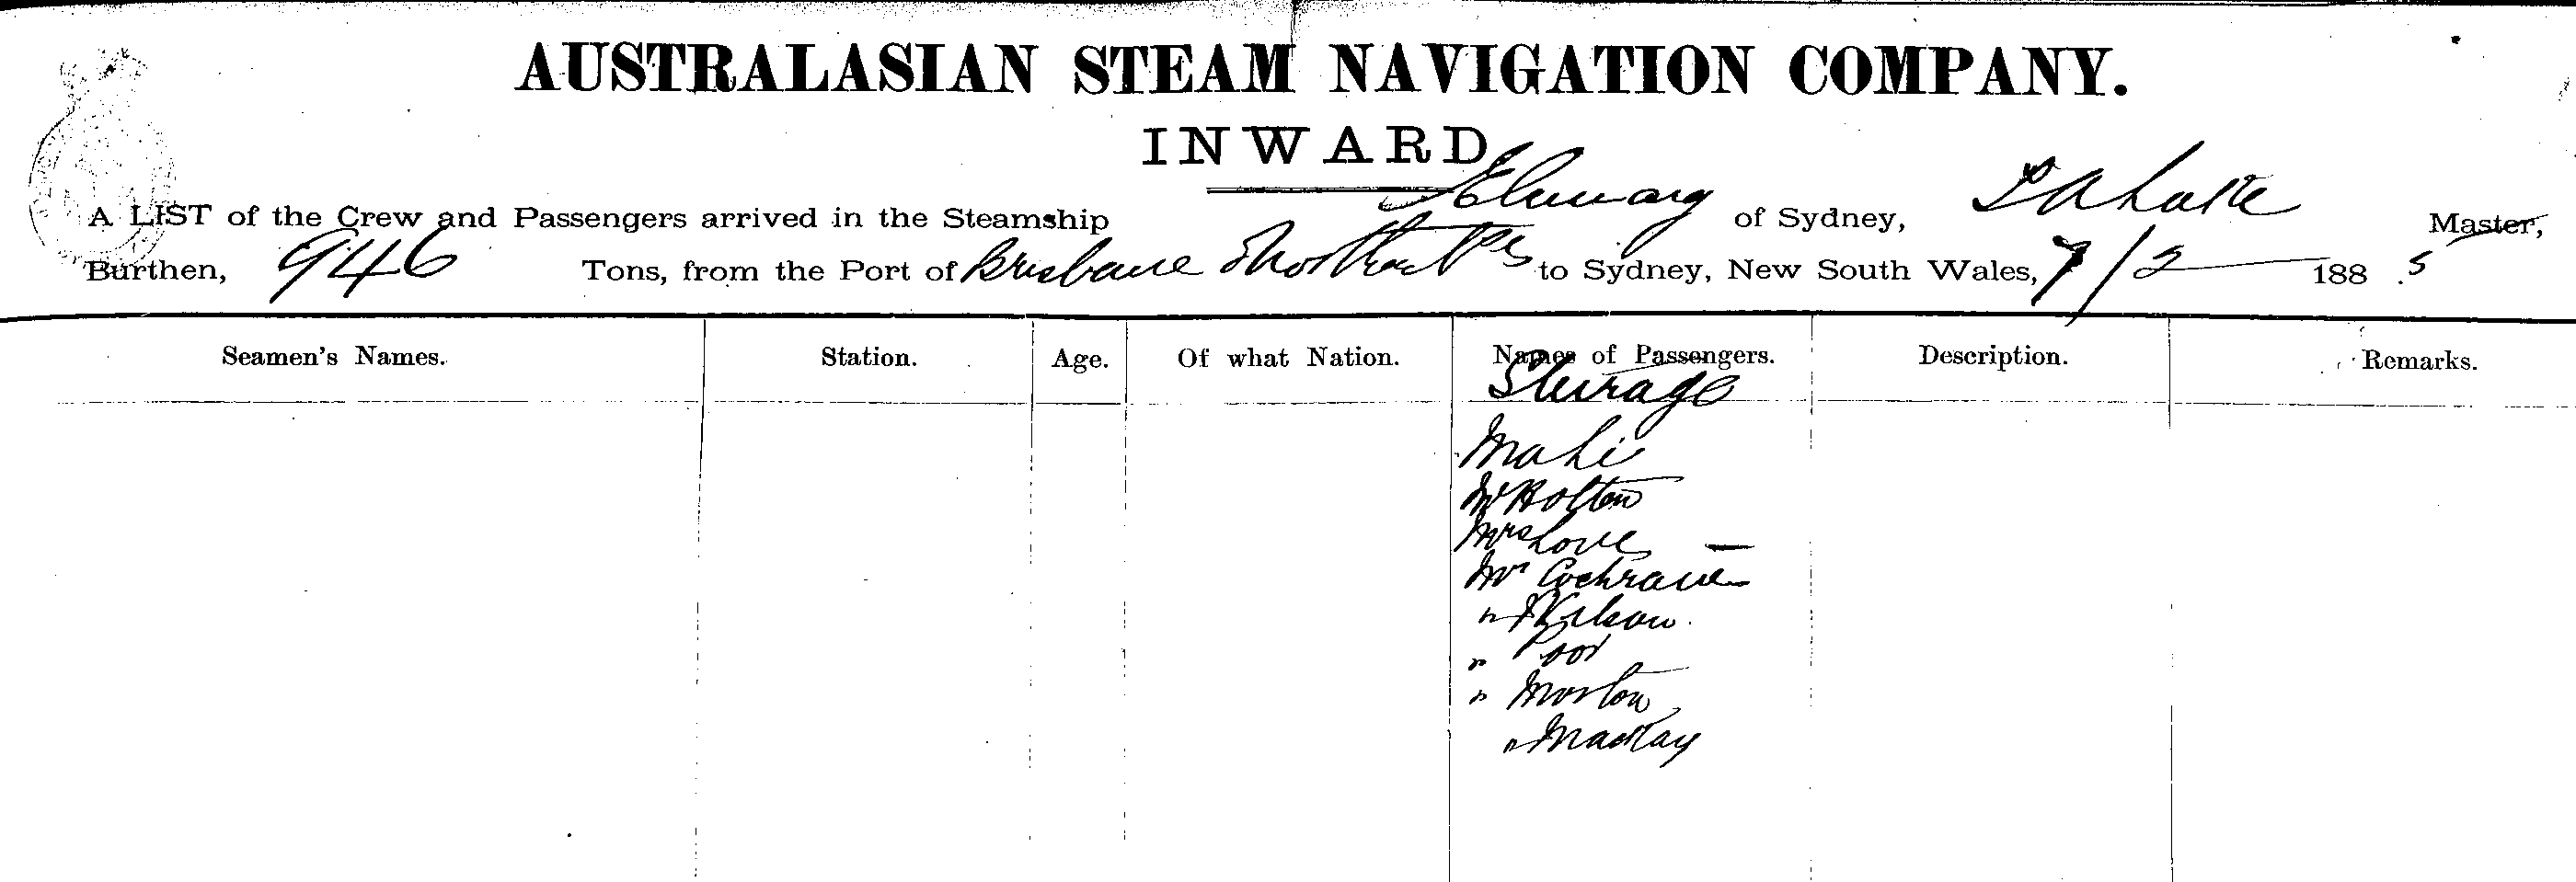 AUSTRALASIAN STEAM NAVIGATION COMPANY.
INWARD.
A LIST of the Crew and Passengers arrived in the Steamship of Sydney, Master,
Burthen, 946 Tons, from the Port of Brisbane to Sydney, New South Wales, 7/2 1885
Seamen's Names. Station. Age. Of what Nation. Names of Passengers. Description. Remarks.
Steerage
Mr Holton
Mrs Love —
Mr Cochrane
" Wilson
" Poor
" Morton
" Mackay